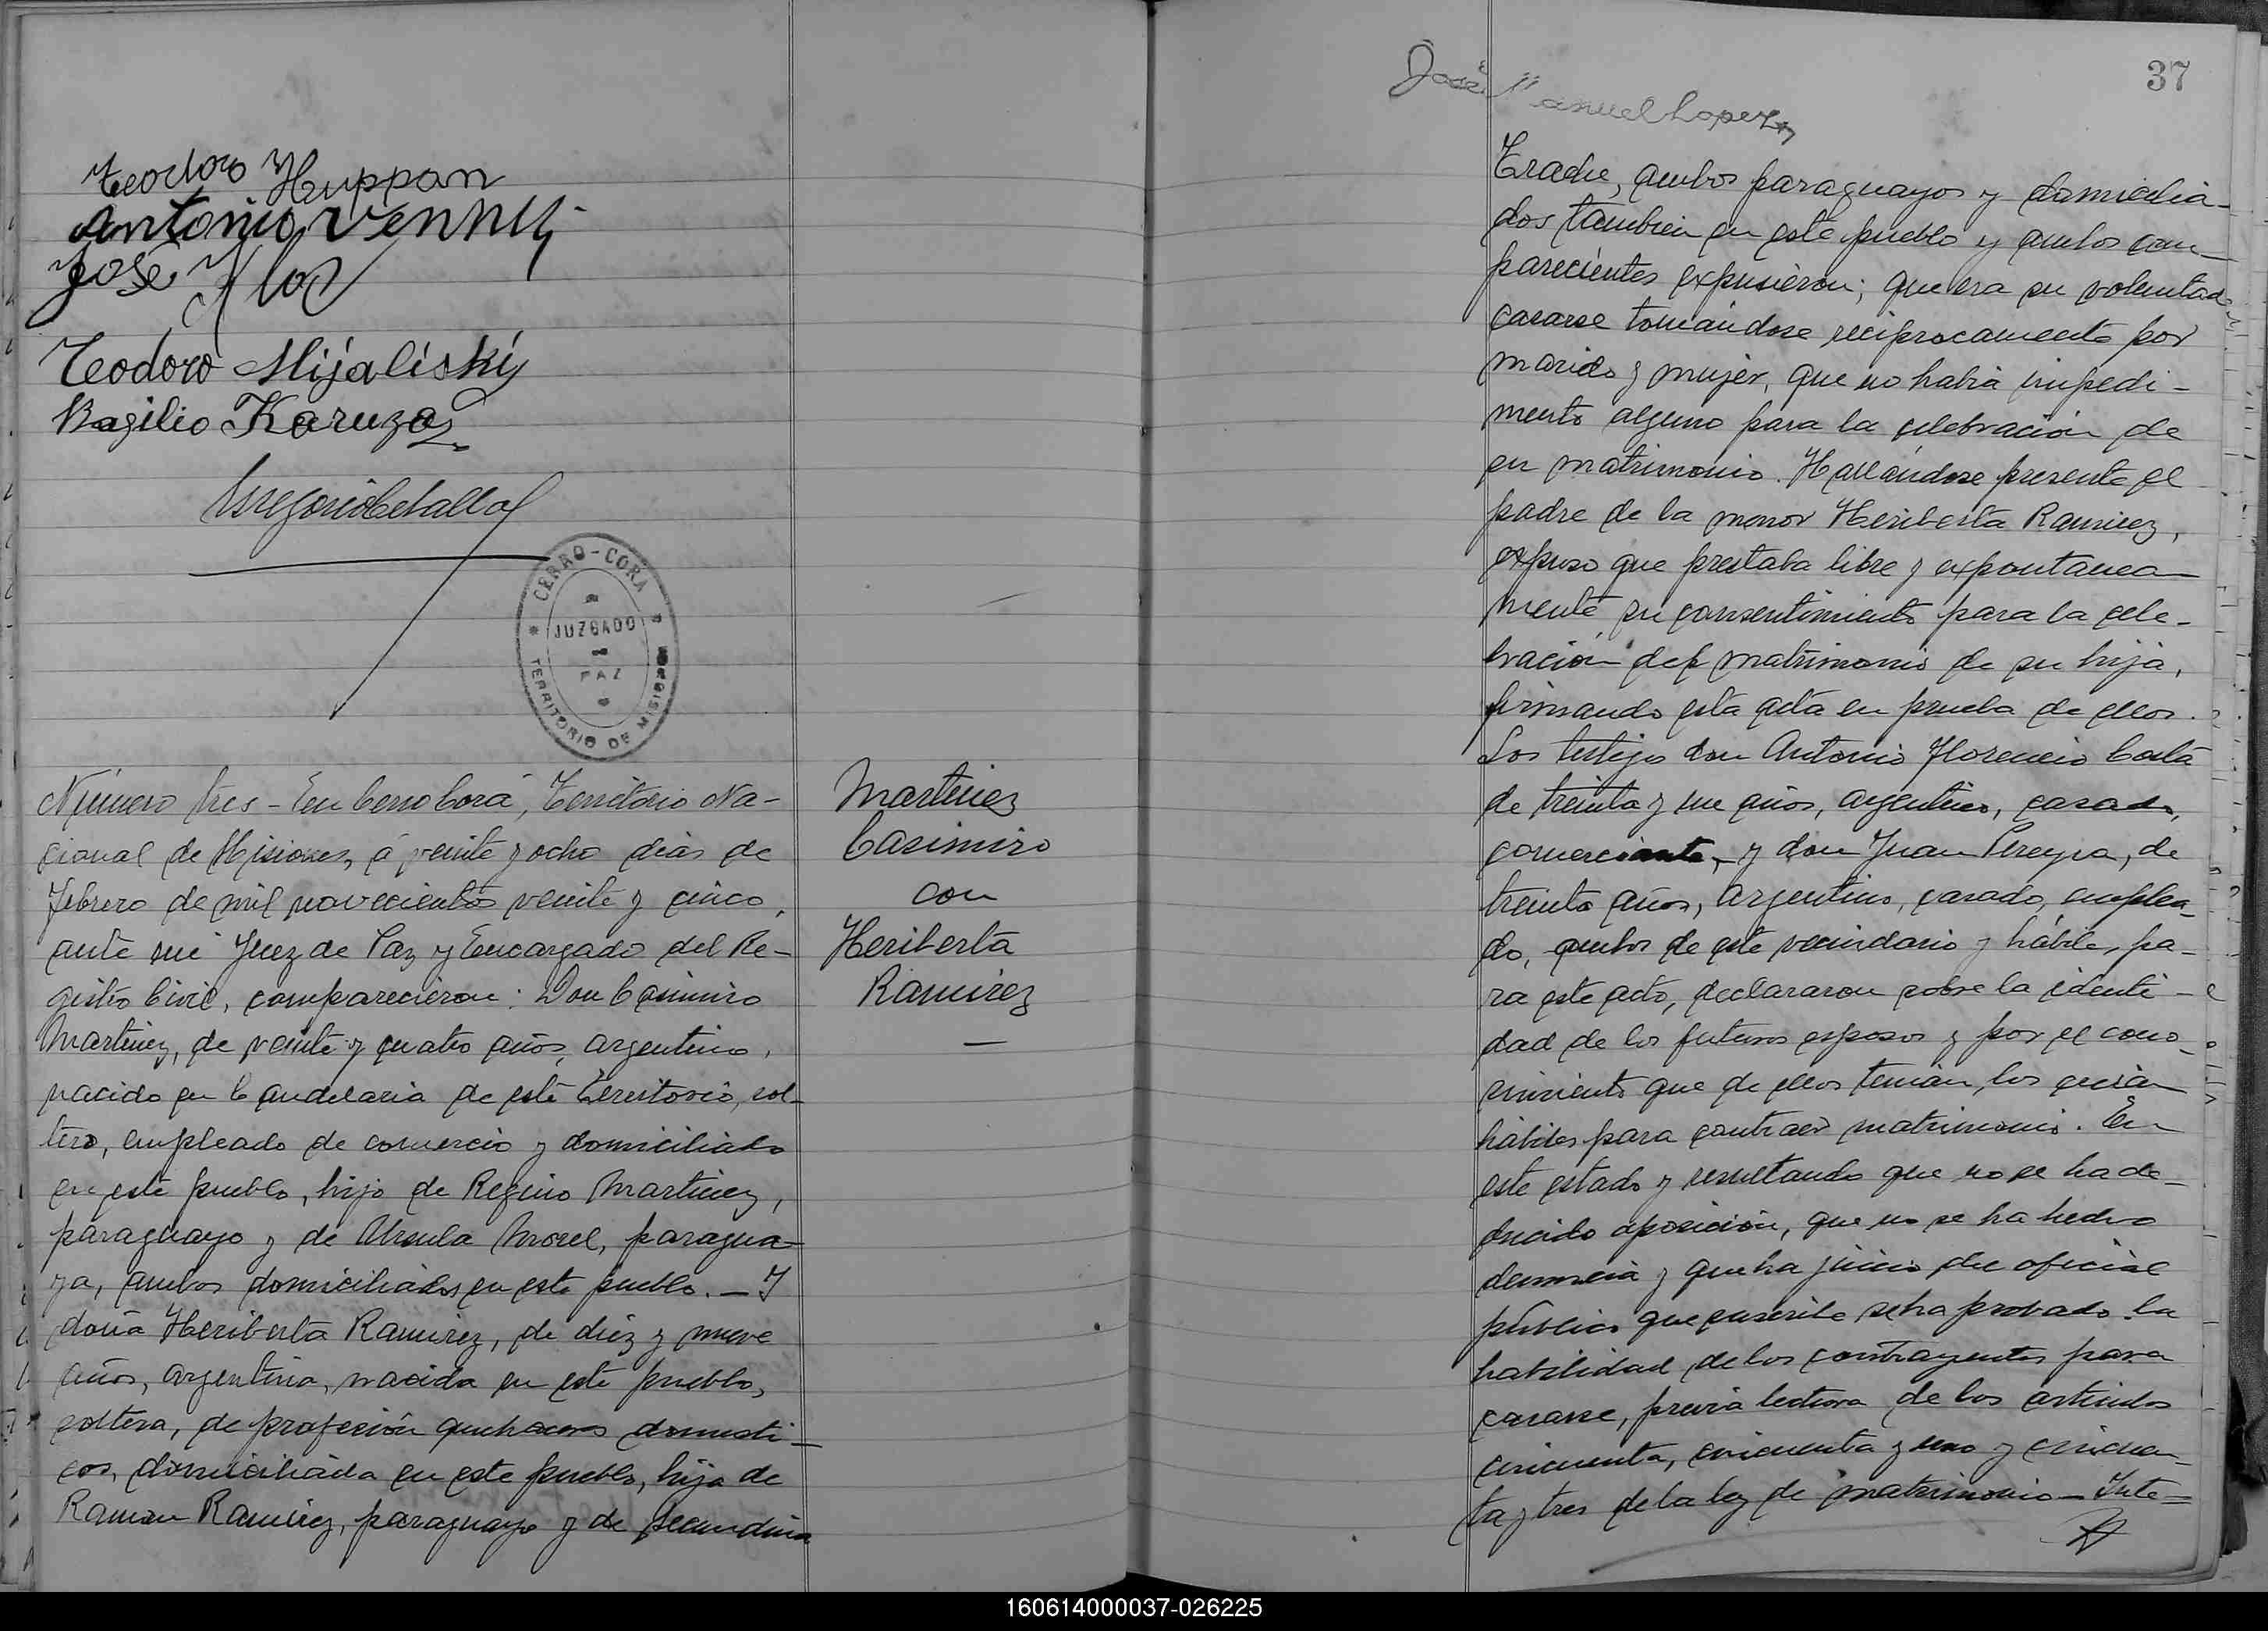 Teodoro Huppan
Antonio Venny
José
Teodoro Mijaliski
Bagilio Karuza
CERRO-CORA
JUZGADO
PAZ
TERRITORIO DE MISIONES
Número tres - En Cerro Corá, Territorio Na-
cional de Misiones, á veinte y ocho dias de
Febrero de mil novecientos veinte y cinco,
ante mi Juez de Paz y Encargado del Re-
gistro Civil, comparecieron: Don Casimiro
Martinez, de veinte y cuatro años, argentino,
nacido en Candelaria de este Territorio, sol-
tero, empleado de comercio y domiciliado
en este pueblo, hijo de Regino Martinez,
paraguayo y de Ursula Morel, paragua-
ya, ambos domiciliados en este pueblo. - Y
doña Heriberta Ramirez, de diez y nueve
años, argentina, nacida en este pueblo,
soltera, de profesión quehaceres domesti-
cos, domiciliada en este pueblo, hija de
Ramon Ramirez, paraguayo y de Secundina
Martinez
Casimiro
con
Heriberta
Ramirez
37
José Manuel Lopez
ambos paraguayos y domicilia-
dos tambien en este pueblo y ambos com-
parecientes expusieron; que era su voluntad
casarse tomándose reciprocamente por
marido y mujer, que no habia impedi-
mento alguno para la celebración de
su matrimonio. Hallándose presente el
padre de la menor Heriberta Ramirez,
expuso que prestaba libre y expontanea-
mente su consentimiento para la cele-
bración del matrimonio de su hija,
firmando esta acta en prueba de ellos.
Los testigos don Antonio Florencio Costa
de treinta y un años, argentino, casado,
comerciante, y don Juan Pereyra, de
treinta años, argentino, casado, emplea-
do, ambos de este vecindario y hábiles pa-
ra este acto, declararon sobre la identi-
dad de los futuros esposos y por el cono-
cimiento que de ellos tenian, los creian
hábiles para contraer matrimonio. En
este estado y resultando que no se ha de-
ducido oposición, que no se ha hecho
denuncia y que ha juicio del oficial
público que suscribe se ha probado la
habilidad de los contrayentes para
casarse, previa lectura de los articulos
cincuenta, cincuenta y uno y cincuen-
ta y tres de la ley de matrimonio - Inte=
160614000037-026225